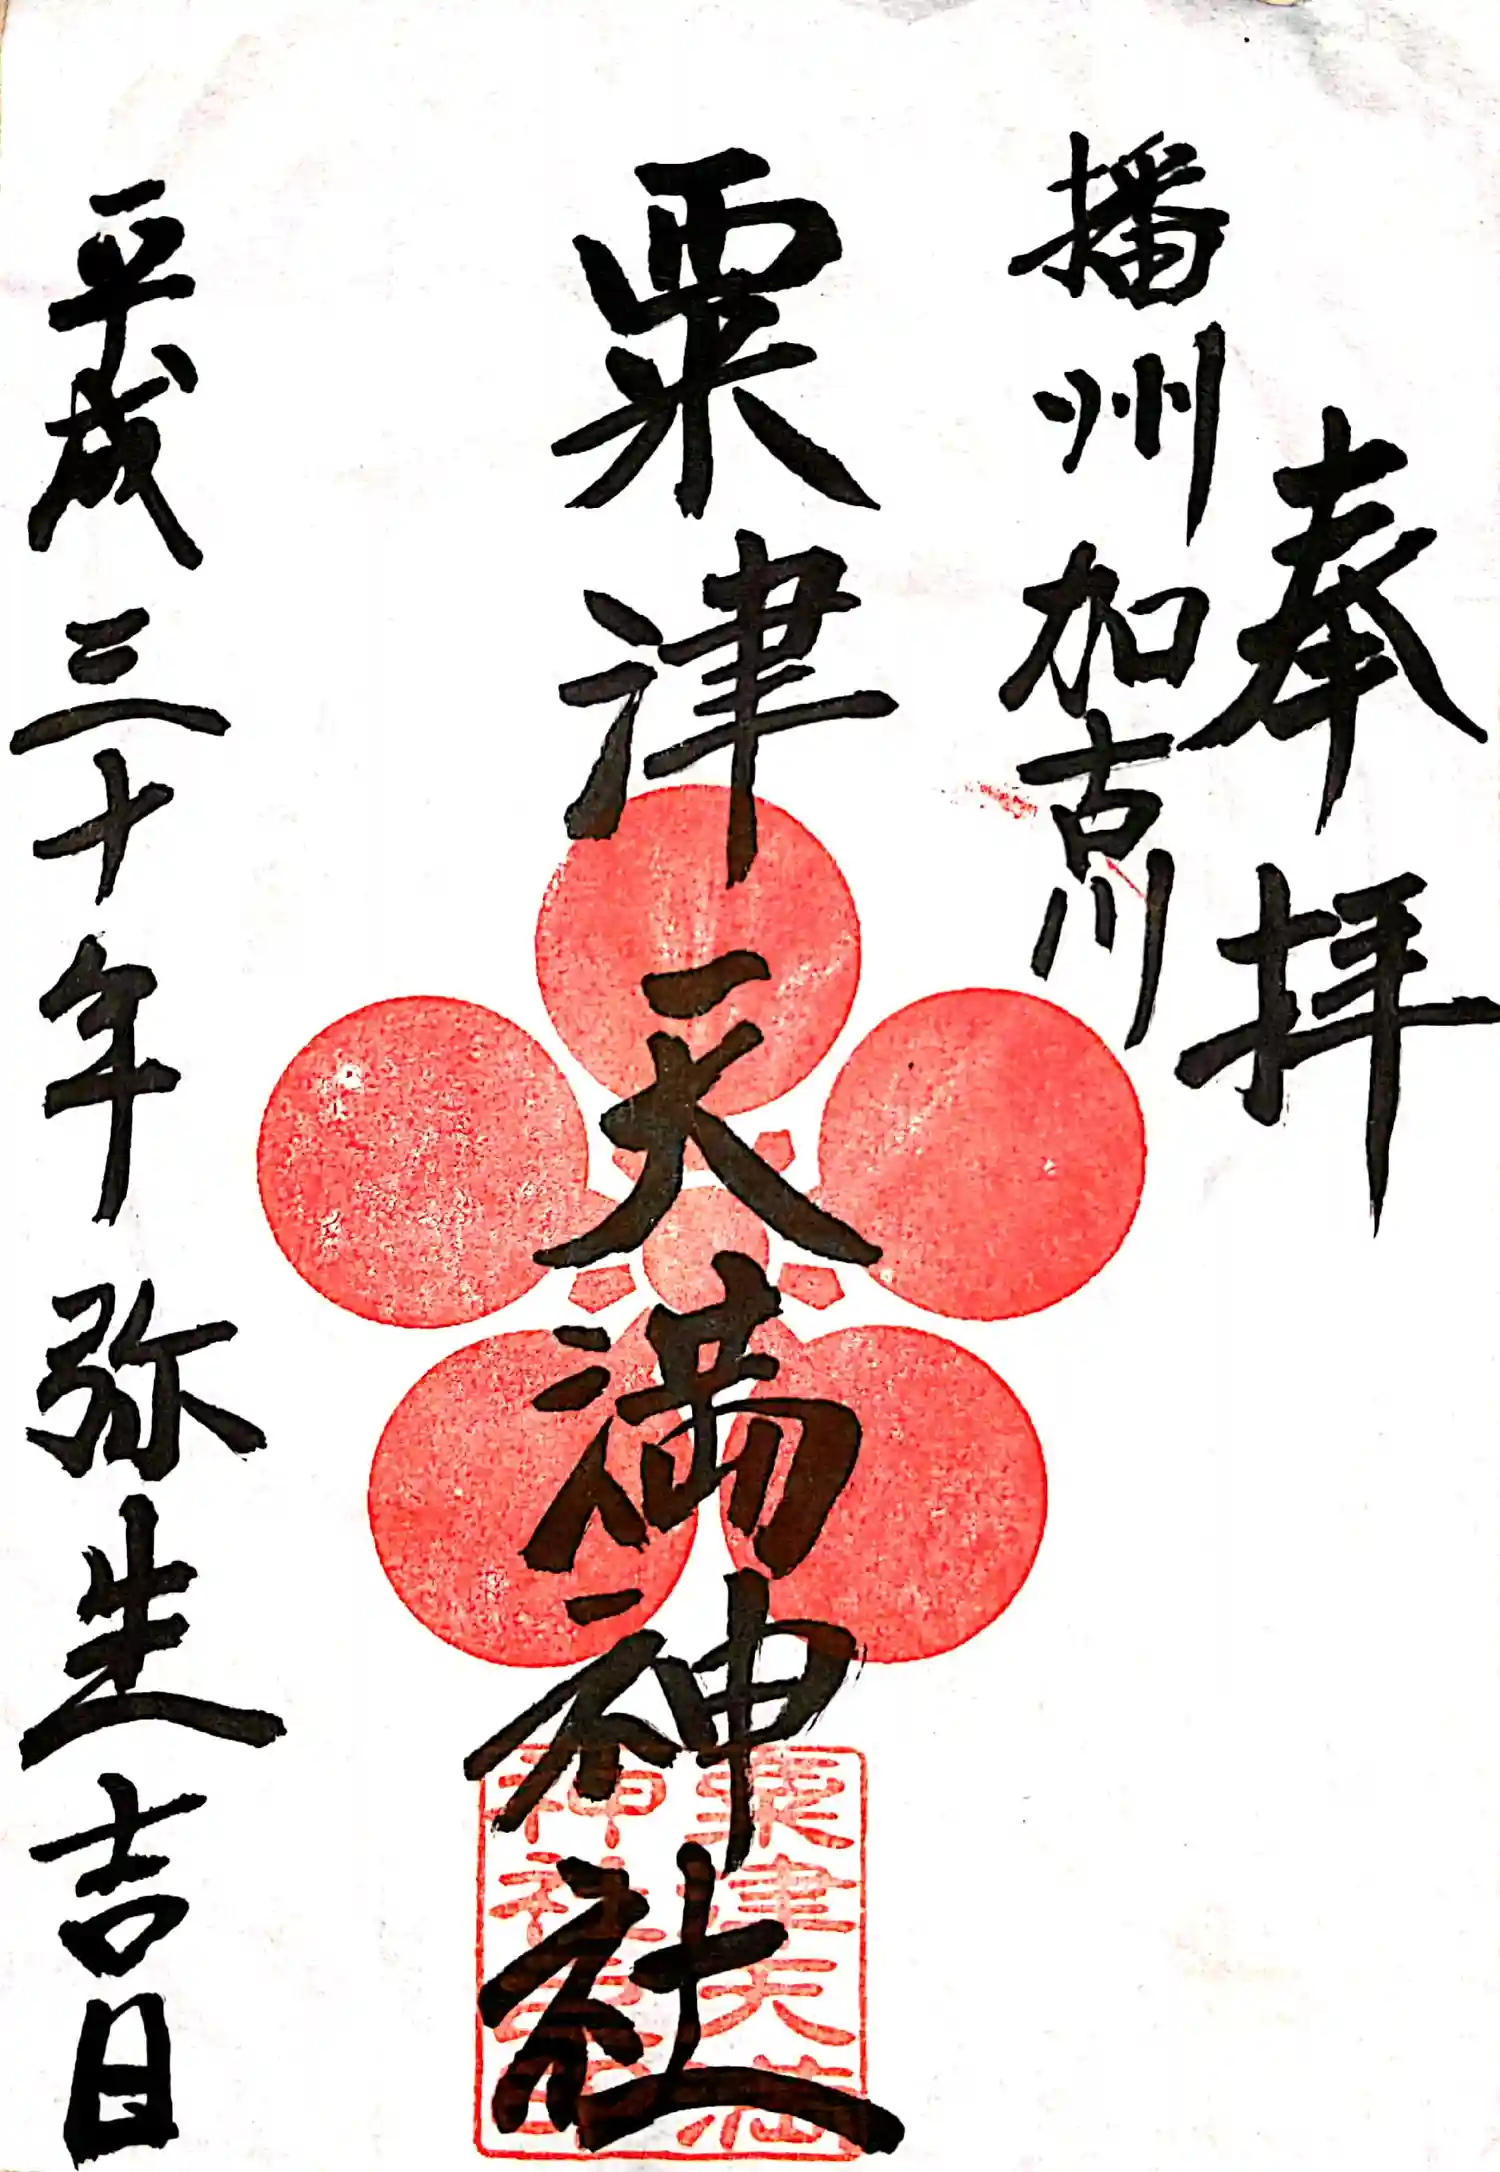 奉拝
播州加古川
粟津天満神社
粟津天満
神社
平成三十年弥生吉日